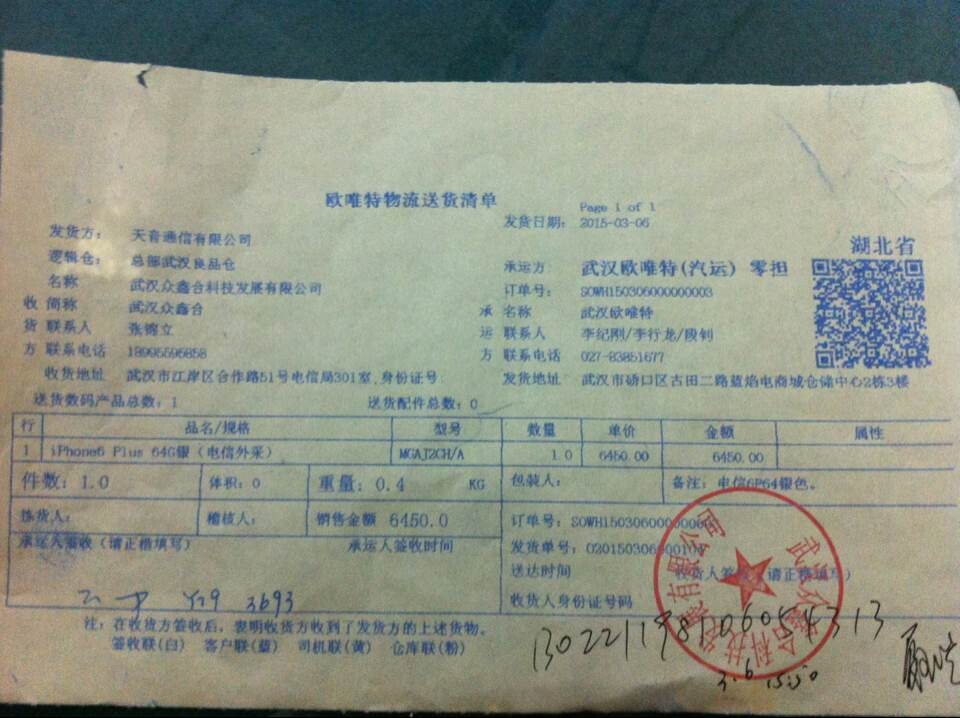 欧唯特物流送货清单
Page 1 of 1
发货日期: 2015-03-06
发货方: 天音通信有限公司
湖北省
逻辑仓: 总部武汉良品仓
承运方 武汉欧唯特(汽运) 零担
名称 武汉众鑫合科技发展有限公司
订单号: SOWH150306000000003
收 简称 武汉众鑫合
承 名称 武汉欧唯特
货 联系人 张锦立
运 联系人 李纪刚/李行龙/段钊
方 联系电话 18995595858
方 联系电话 027-83851677
收货地址 武汉市江岸区合作路51号电信局301室,身份证号:
发货地址 武汉市硚口区古田二路蓝焰电商城仓储中心2栋3楼
送货数码产品总数: 1 送货配件总数: 0
行 品名/规格 型号 数量 单价 金额 属性
1 iPhone6 Plus 64G银(电信外采) MGAJ2CH/A 1.0 6450.00 6450.00
件数: 1.0 体积: 0 重量: 0.4 KG 包装人: 备注: 电信6P64银色。
拣货人: 稽核人: 销售金额 6450.0 订单号: SOWH150306000000
承运人签收(请正楷填写) 承运人签收时间 发货单号:
送达时间 收货人签收(请正楷填写)
收货人身份证号码
3693
注: 在收货方签收后, 表明收货方收到了发货方的上述货物。
签收联(白) 客户联(蓝) 司机联(黄) 仓库联(粉)
130221198106054313
3.6 15:50
武汉众鑫合科技发展有限公司